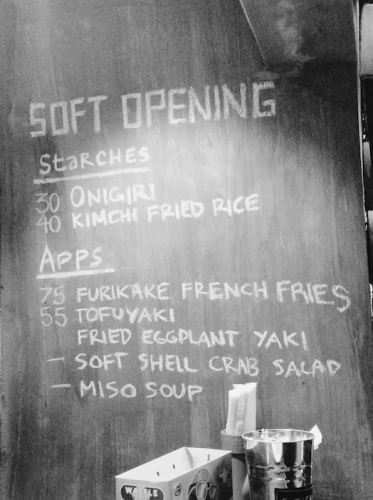 SOFT OPENING
STARCHES
30 ONIGIRI
40 KIMCHI FRIED RICE
APPS
75 FURIKAKE FRENCH FRIES
55 TOFUYAKI
FRIED EGGPLANT YAKI
- SOFT SHELL CRAB SALAD
- MISO SOUP